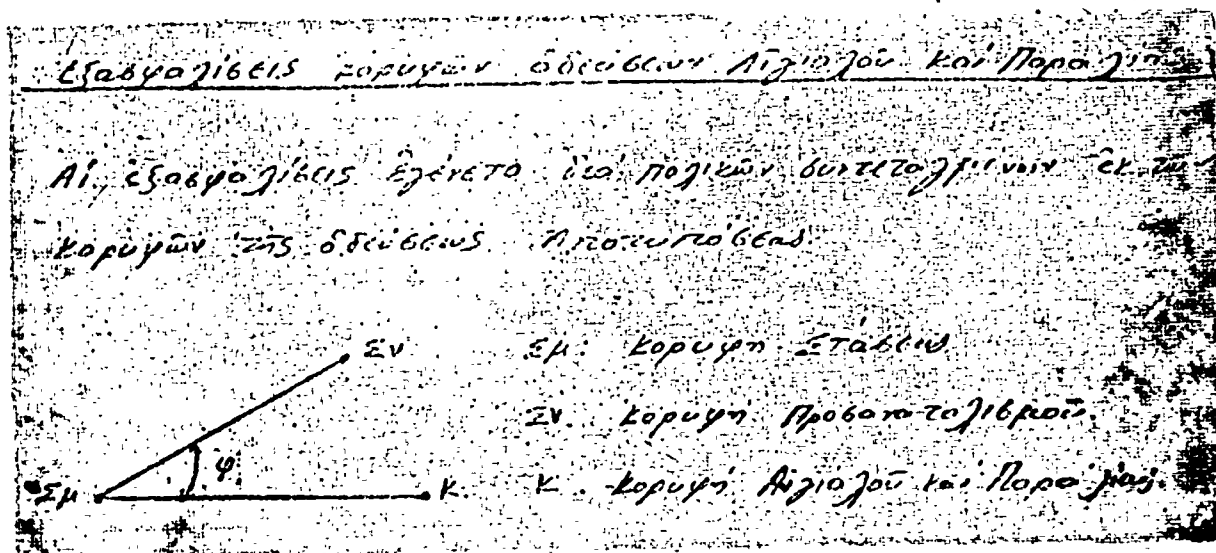 Ἐξασφαλίσεις κορυφῶν ὁδεύσεων Αἰγιαλοῦ καί Παραλίας
Αἱ ἐξασφαλίσεις ἐγένετο διά πολικῶν συντεταγμένων ἐκ τῶν
κορυφῶν τῆς ὁδεύσεως Ἀποτυπώσεως
Σν Σμ: Κορυφή Στάσεως
Σν. Κορυφή Προσανατολισμοῦ.
φ
Σμ Κ. Κ. Κορυφή Αἰγιαλοῦ καί Παραλίας.